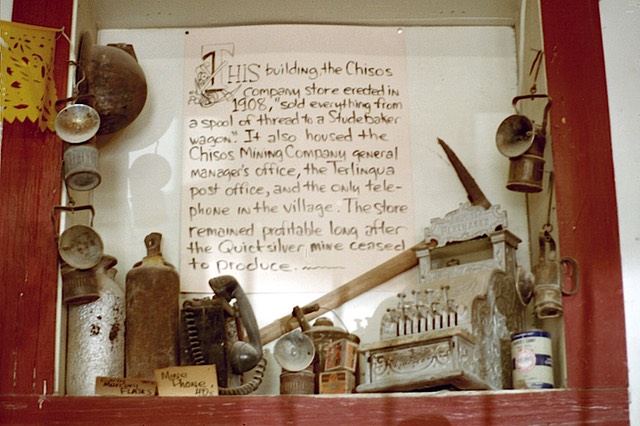 THIS building, the Chisos
Company store erected in
1908, "sold everything from
a spool of thread to a Studebaker
wagon." It also housed the
Chisos Mining Company general
manager's office, the Terlingua
post office, and the only tele-
phone in the village. The store
remained profitable long after
the Quicksilver mine ceased
to produce.
Mercury
FLASKS
MINE
PHONE,
40s